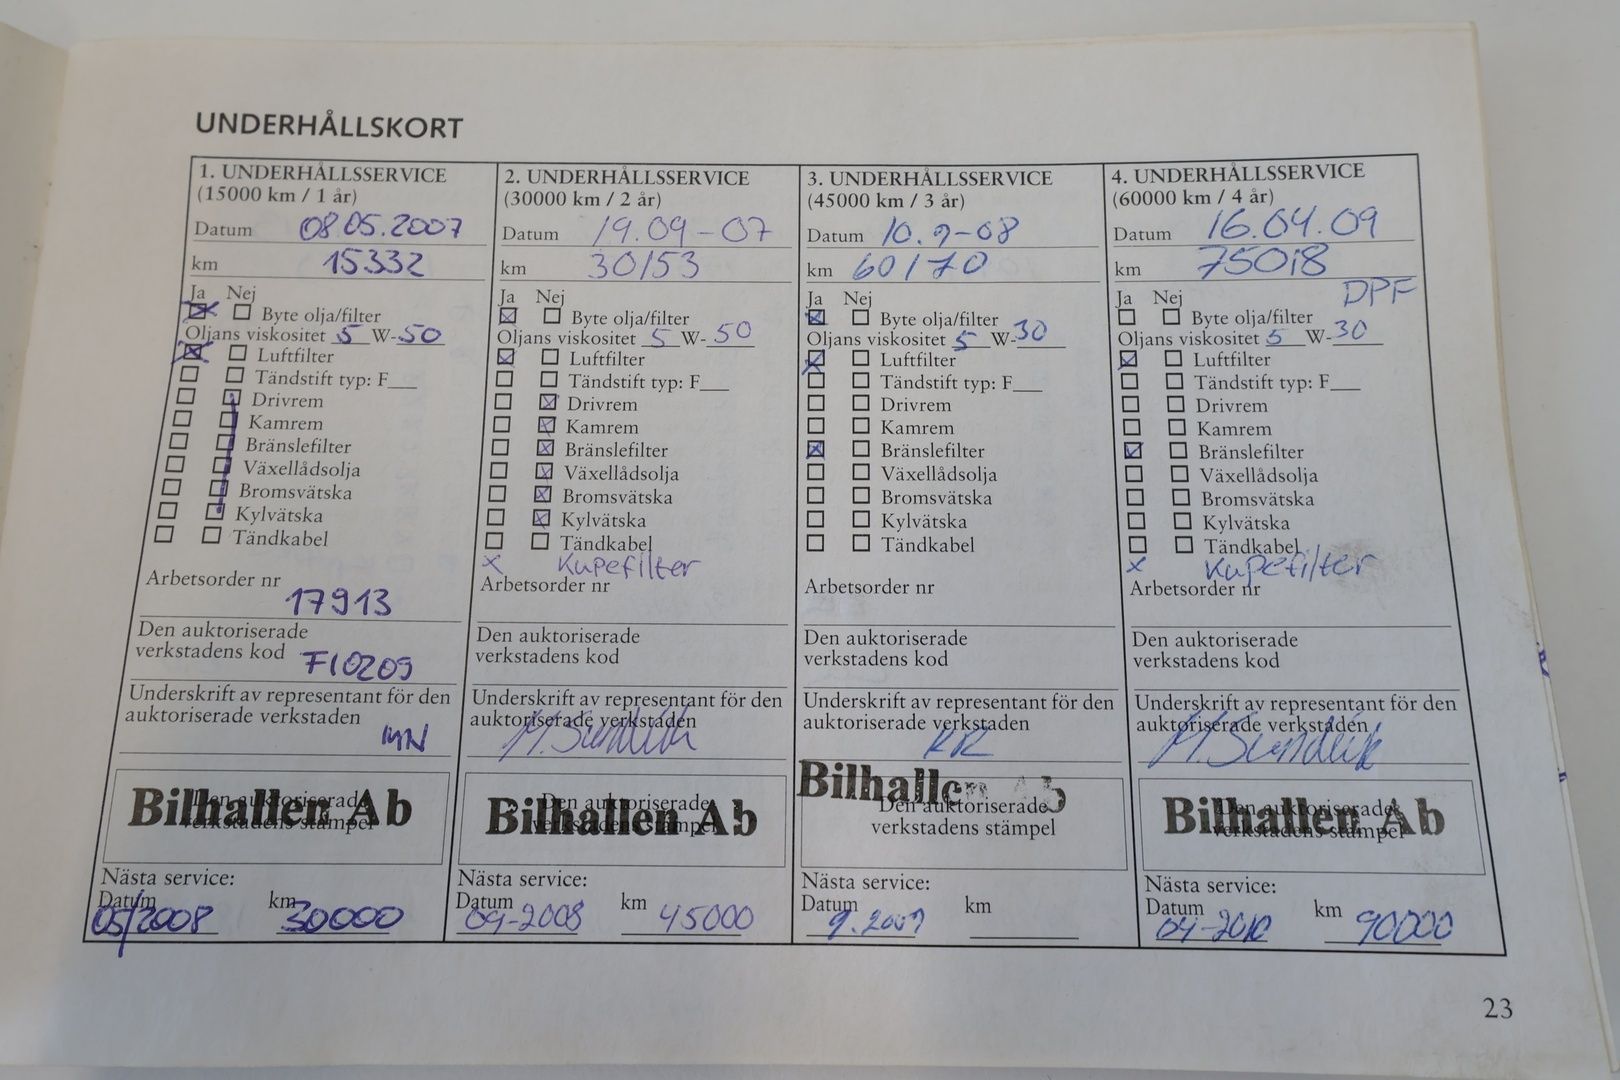 UNDERHÅLLSKORT
1. UNDERHÅLLSSERVICE
(15000 km / 1 år)
Datum 08.05.2007
km 15332
Ja Nej
Byte olja/filter
Oljans viskositet 5 W-50
Luftfilter
Tändstift typ: F___
Drivrem
Kamrem
Bränslefilter
Växellådsolja
Bromsvätska
Kylvätska
Tändkabel
Arbetsorder nr
17913
Den auktoriserade
verkstadens kod FI0209
Underskrift av representant för den
auktoriserade verkstaden
Den auktoriserade
verkstadens stämpel
Bilhallen Ab
Nästa service:
Datum km
05/2008 30000
2. UNDERHÅLLSSERVICE
(30000 km / 2 år)
Datum 19.09-07
km 30153
Ja Nej
Byte olja/filter
Oljans viskositet 5 W-50
Luftfilter
Tändstift typ: F___
Drivrem
Kamrem
Bränslefilter
Växellådsolja
Bromsvätska
Kylvätska
Tändkabel
x Kupefilter
Arbetsorder nr
Den auktoriserade
verkstadens kod
Underskrift av representant för den
auktoriserade verkstaden
Den auktoriserade
verkstadens stämpel
Bilhallen Ab
Nästa service:
Datum km
09-2008 45000
3. UNDERHÅLLSSERVICE
(45000 km / 3 år)
Datum 10.9-08
km 60170
Ja Nej
Byte olja/filter
Oljans viskositet 5 W-30
Luftfilter
Tändstift typ: F___
Drivrem
Kamrem
Bränslefilter
Växellådsolja
Bromsvätska
Kylvätska
Tändkabel
Arbetsorder nr
Den auktoriserade
verkstadens kod
Underskrift av representant för den
auktoriserade verkstaden
Bilhallen Ab
Den auktoriserade
verkstadens stämpel
Nästa service:
Datum km
9.2009
4. UNDERHÅLLSSERVICE
(60000 km / 4 år)
Datum 16.04.09
km 75018
Ja Nej DPF
Byte olja/filter
Oljans viskositet 5 W-30
Luftfilter
Tändstift typ: F___
Drivrem
Kamrem
Bränslefilter
Växellådsolja
Bromsvätska
Kylvätska
Tändkabel
x Kupefilter
Arbetsorder nr
Den auktoriserade
verkstadens kod
Underskrift av representant för den
auktoriserade verkstaden
Den auktoriserade
verkstadens stämpel
Bilhallen Ab
Nästa service:
Datum km
04-2010 90000
23